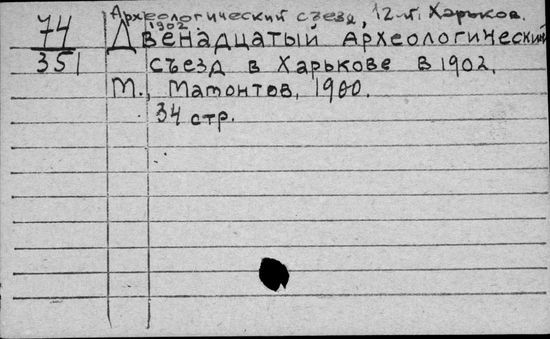 Археологический съезд, 12-й. Харьков.
1902
74
Двенадцатый Археологический
351
съезд в Харькове в 1902.
М., Мамонтов, 1900.
34 стр.